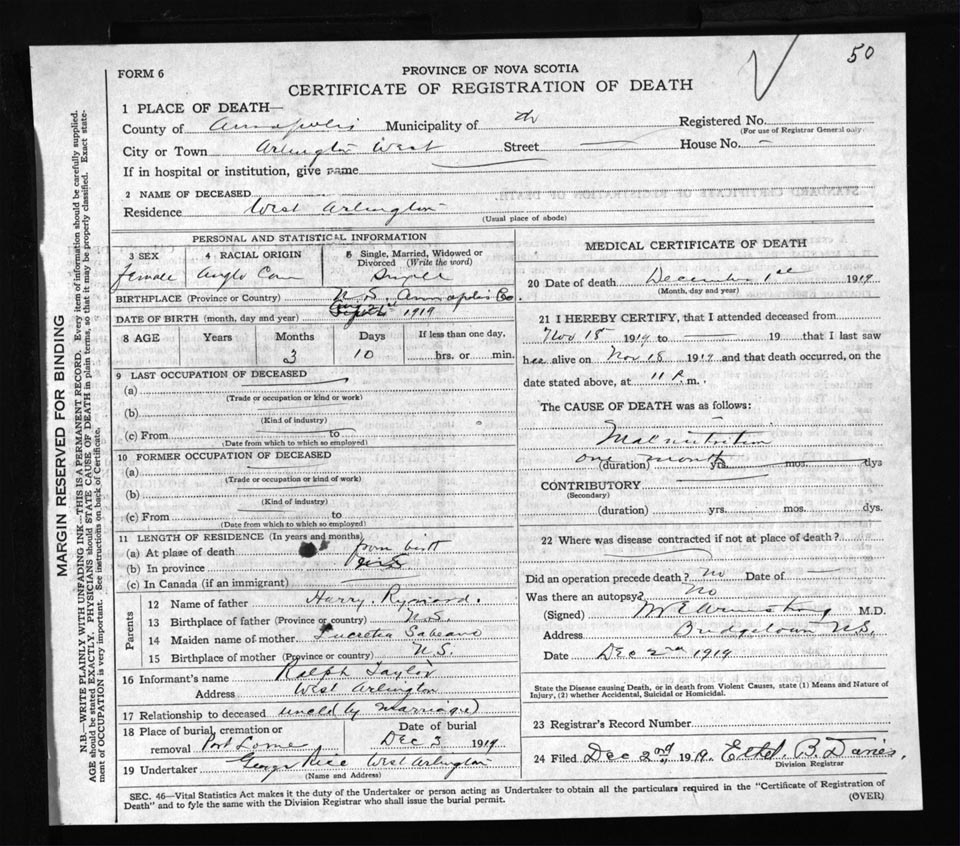 50
FORM 6
PROVINCE OF NOVA SCOTIA
CERTIFICATE OF REGISTRATION OF DEATH
1 PLACE OF DEATH—
County of Annapolis Municipality of
Registered No.
(For use of Registrar General only)
City or Town Arlington West Street — House No. —
If in hospital or institution, give name
2 NAME OF DECEASED
Residence West Arlington
(Usual place of abode)
PERSONAL AND STATISTICAL INFORMATION
3 SEX 4 RACIAL ORIGIN 5 Single, Married, Widowed or Divorced (Write the word)
female Anglo Can Single
BIRTHPLACE (Province or Country) N.S. Annapolis Co.
DATE OF BIRTH (month, day and year) 1919
8 AGE Years Months Days If less than one day,
3 10 hrs. or min.
9 LAST OCCUPATION OF DECEASED
(a)
(Trade or occupation or kind of work)
(b)
(Kind of industry)
(c) From to
(Date from which to which so employed)
10 FORMER OCCUPATION OF DECEASED
(a)
(Trade or occupation or kind of work)
(b)
(Kind of industry)
(c) From to
(Date from which to which so employed)
11 LENGTH OF RESIDENCE (In years and months)
(a) At place of death from birth
(b) In province
(c) In Canada (if an immigrant)
Parents
12 Name of father Harry
13 Birthplace of father (Province or country) N.S.
14 Maiden name of mother Lucretia Sabeans
15 Birthplace of mother (Province or country) N.S.
16 Informant's name Ralph Taylor
Address West Arlington
17 Relationship to deceased uncle (by marriage)
18 Place of burial, cremation or removal Port Lorne
Date of burial
Dec 3 1919
19 Undertaker George Rice West Arlington
(Name and Address)
MEDICAL CERTIFICATE OF DEATH
20 Date of death December 1st 1919
(Month, day and year)
21 I HEREBY CERTIFY, that I attended deceased from
Nov 18 1919 to — 19 that I last saw
her alive on Nov 18 1919 and that death occurred, on the
date stated above, at 11 P. m.
The CAUSE OF DEATH was as follows:
Malnutrition
one month
(duration) yrs. mos. dys
CONTRIBUTORY
(Secondary)
(duration) yrs. mos. dys.
22 Where was disease contracted if not at place of death?
Did an operation precede death? No Date of —
Was there an autopsy? No
(Signed) M E Armstrong M.D.
Address Bridgetown N.S.
Date Dec 2nd 1919
State the Disease causing Death, or in death from Violent Causes, state (1) Means and Nature of
Injury, (2) whether Accidental, Suicidal or Homicidal.
23 Registrar's Record Number
24 Filed Dec 2nd, 1919. Ethel. B. Daries.
Division Registrar
SEC. 46—Vital Statistics Act makes it the duty of the Undertaker or person acting as Undertaker to obtain all the particulars required in the "Certificate of Registration of
Death" and to fyle the same with the Division Registrar who shall issue the burial permit.
(OVER)
MARGIN RESERVED FOR BINDING
N.B.—WRITE PLAINLY WITH UNFADING INK—THIS IS A PERMANENT RECORD. Every item of information should be carefully supplied.
AGE should be stated EXACTLY. PHYSICIANS should STATE CAUSE OF DEATH in plain terms, so that it may be properly classified. Exact state-
ment of OCCUPATION is very important. See instructions on back of Certificate.